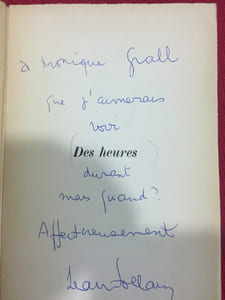 à Monique Grall
que j'aimerais
voir
(Des heures)
durant
mais quand?
Affectueusement
Jean Follain